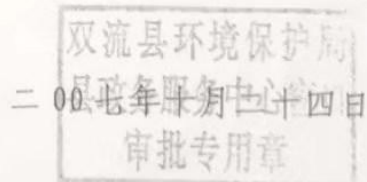 双流县环境保护局
县政务服务中心窗口
二00七年十月二十四日
审批专用章